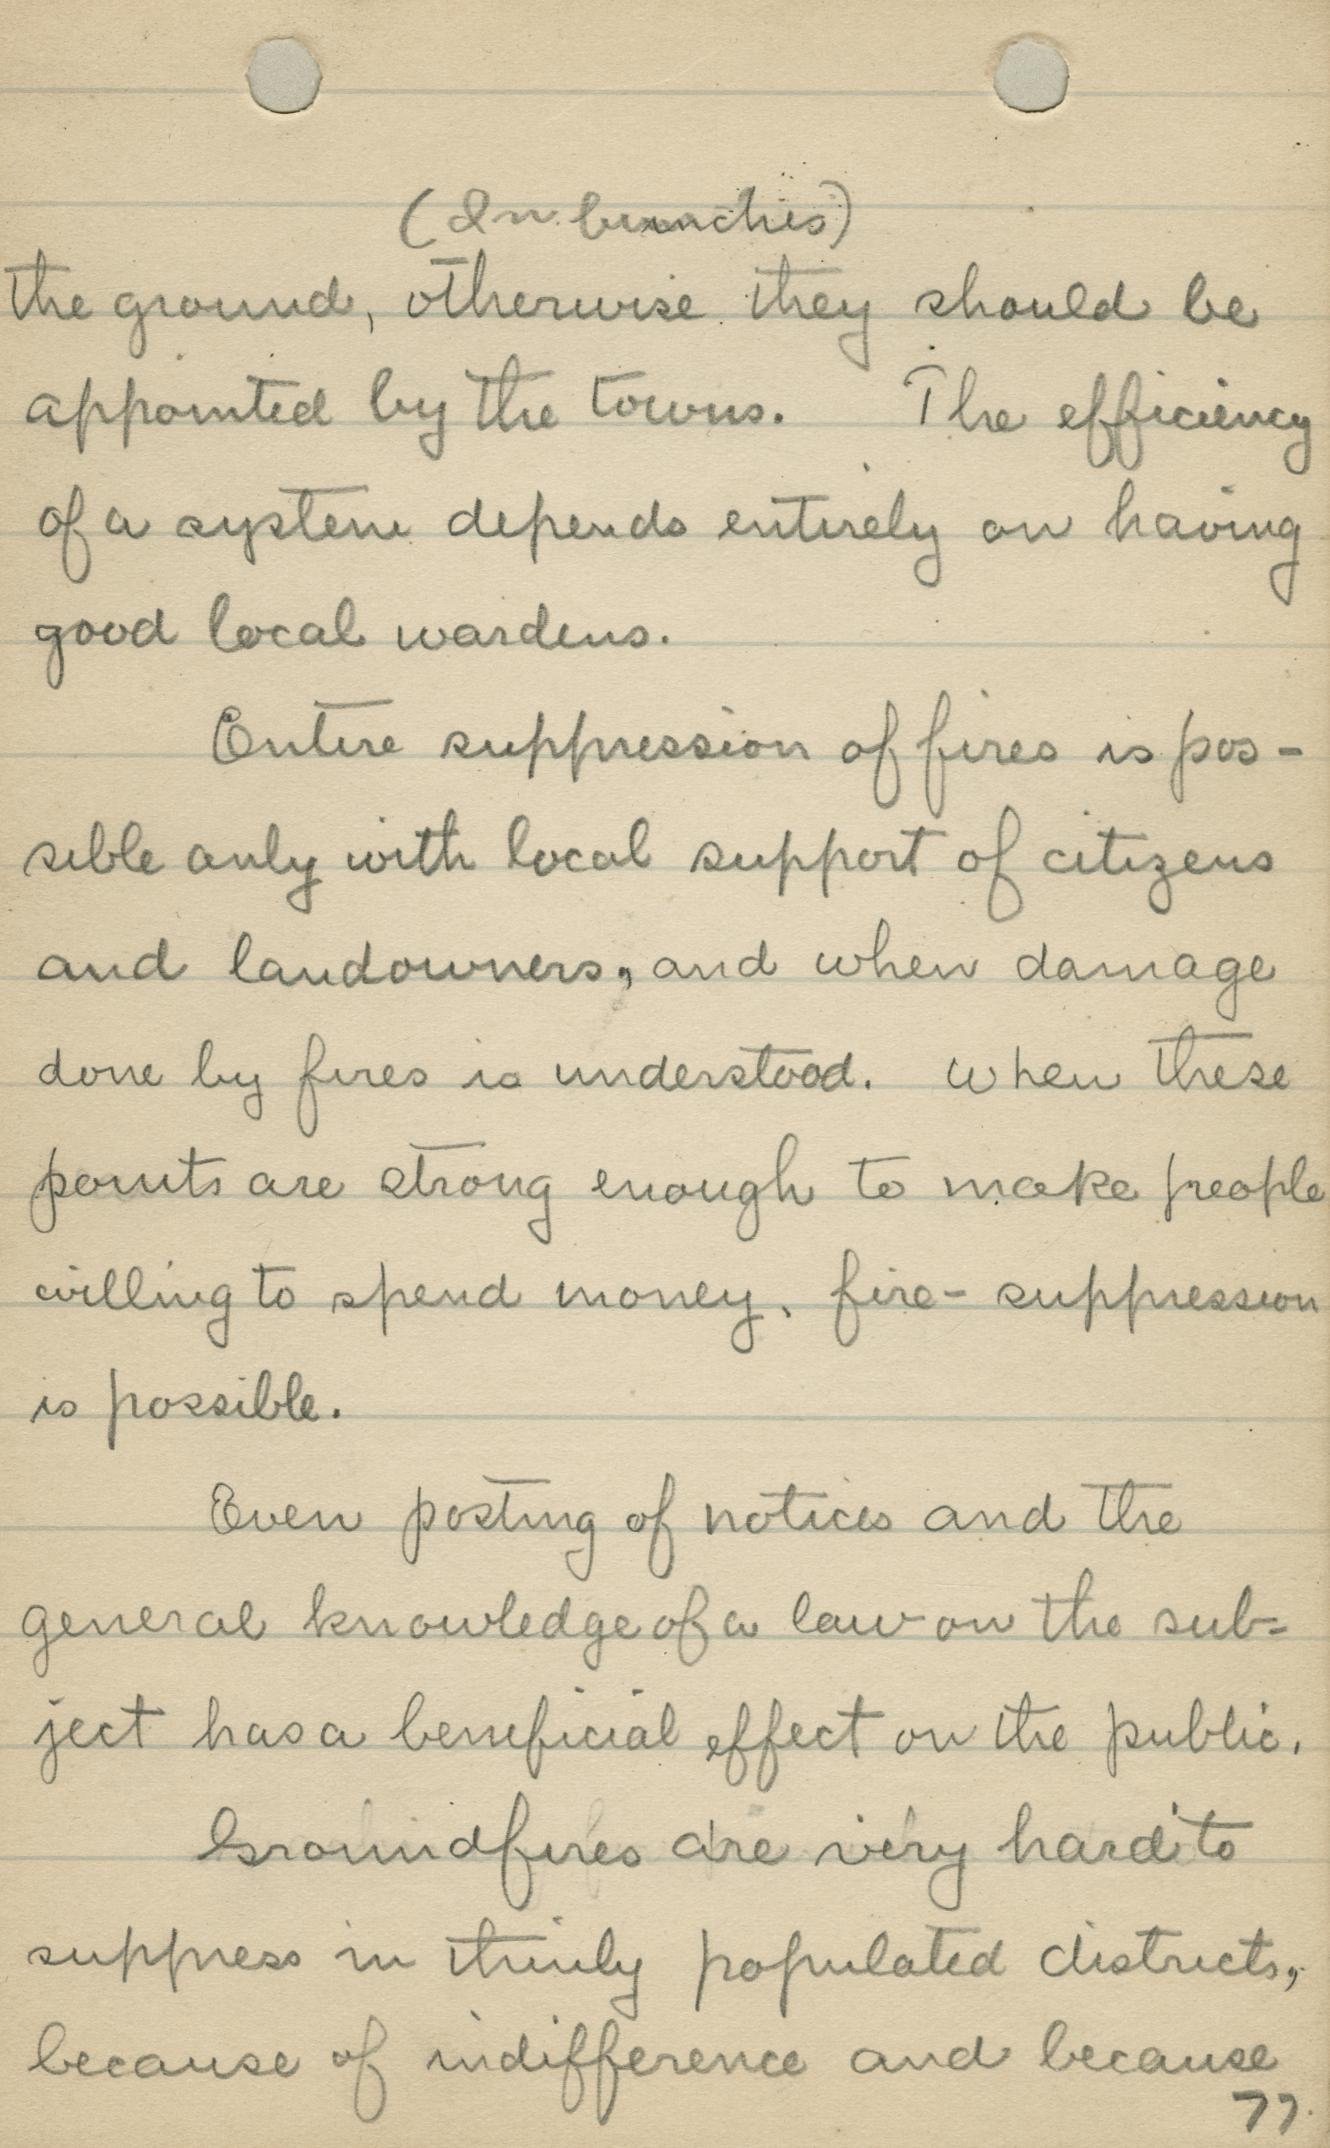 (In bunches)
the ground, otherwise they should be
appointed by the towns. The efficiency
of a system depends entirely on having
good local wardens.
Entire suppression of fires is pos-
sible only with local support of citizens
and landowners, and when damage
done by fires is understood. When these
points are strong enough to make people
willing to spend money, fire-suppression
is possible.
Even posting of notices and the
general knowledge of a law on the sub=
ject has a beneficial effect on the public.
Groundfires are very hard to
suppress in thinly populated districts,
because of indifference and because
77.